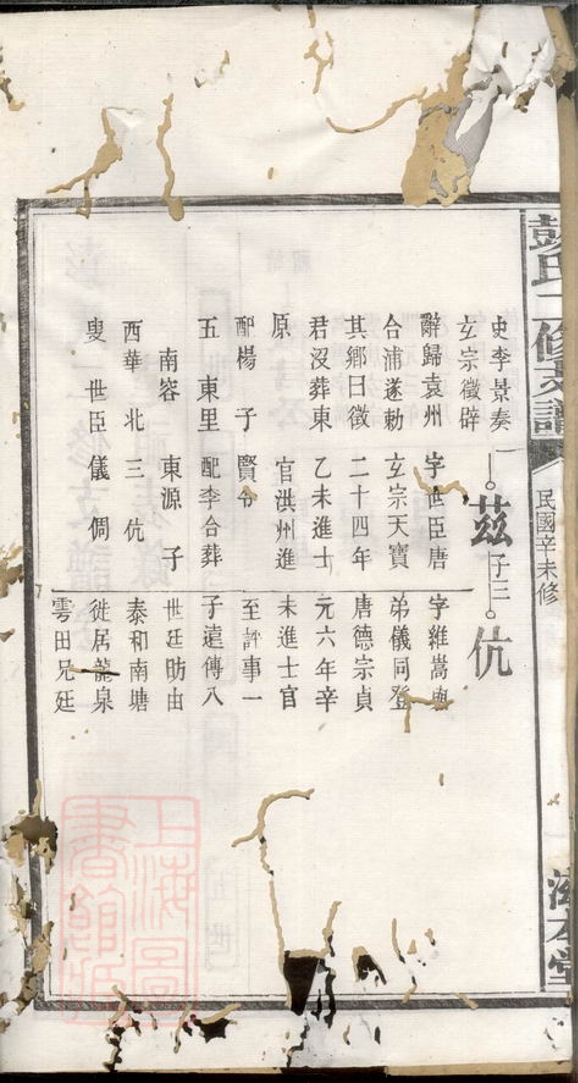 彭氏二修支譜
民國辛未修
史李景奏
玄宗徵辟
辭歸袁州
合浦遂勅
其鄉曰徵
君沒葬東
原
配楊 子
五 東里
南容
西華 北
叟 世臣
茲 子三
字世臣唐
玄宗天寶
二十四年
乙未進士
官洪州進
賢令
配李合葬
東源 子
三 伉
儀 倜
伉
字維嵩與
弟儀同登
唐德宗貞
元六年辛
未進士官
至評事一
子遠傳八
世廷昉由
泰和南塘
徙居龍泉
雩田兄廷
本堂
上海圖書館藏